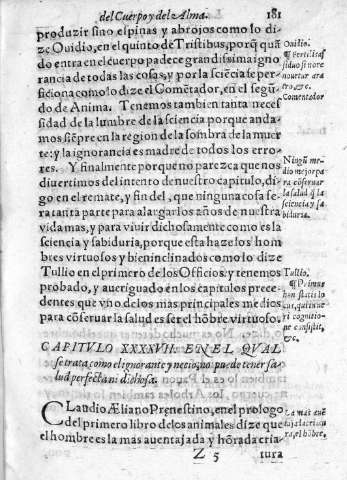 del Cuerpo y del Alma. 181
produzir sino espinas y abrojos como lo di
ze Ouidio, en el quinto de Tristibus, porq̃ quã
do entra en el cuerpo padece grandissima igno
rancia de todas las cosas, y por la sciẽcia se per-
siciona como lo dize el Comẽtador, en el segũ
do de Anima. Tenemos tambien tanta neces
sidad de la lumbre de la sciencia porque anda-
mos siẽpre en la region de la sombra de la muer
te: y la ignorancia es madre de todos los erro-
res. Y finalmente porque no parezca que nos
diuertimos del intento de nuestro capitulo, di-
go en el remate, y fin del, que ninguna cosa se-
ra tanta parte para alargar los años de nuestra
vida mas, y para vivir dichosamente como es la
sciencia y sabiduria, porque esta haze los hom
bres virtuosos y bien inclinados como lo dize
Tullio en el primero de los Officios: y tenemos
probado, y aueriguado en los capitulos prece-
dentes que vno de los mas principales medios
para cõseruar la salud es ser el hõbre virtuoso.
Ouidio.
Comentador
Ningũ me-
dio mejor pa
ra cõseruar
la salud q̃ la
sciencia y sa
biduria.
Tullio.
CAPITVLO XXXXVII. EN EL QVAL
se trata como el ignorante y necio, no puede tener sa-
lud perfecta ni dichosa.
CLaudio Æliano Prenestino, en el prologo
del primero libro de los animales dize que
el hombre es la mas auentajada y hõrada cria-
ra, el hõbre.
Z 5 tura